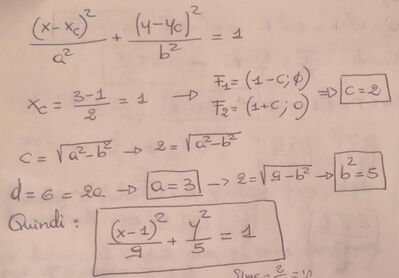 (x-xc)²/a² + (y-yc)²/b² = 1
xc = (3-1)/2 = 1 → F₁=(1-c; ∅)
F₂=(1+c; 0) ⇒ c=2
c = √(a²-b²) → 2 = √(a²-b²)
d = 6 = 2a → a=3 → 2=√(9-b²) → b²=5
Quindi: (x-1)²/9 + y²/5 = 1